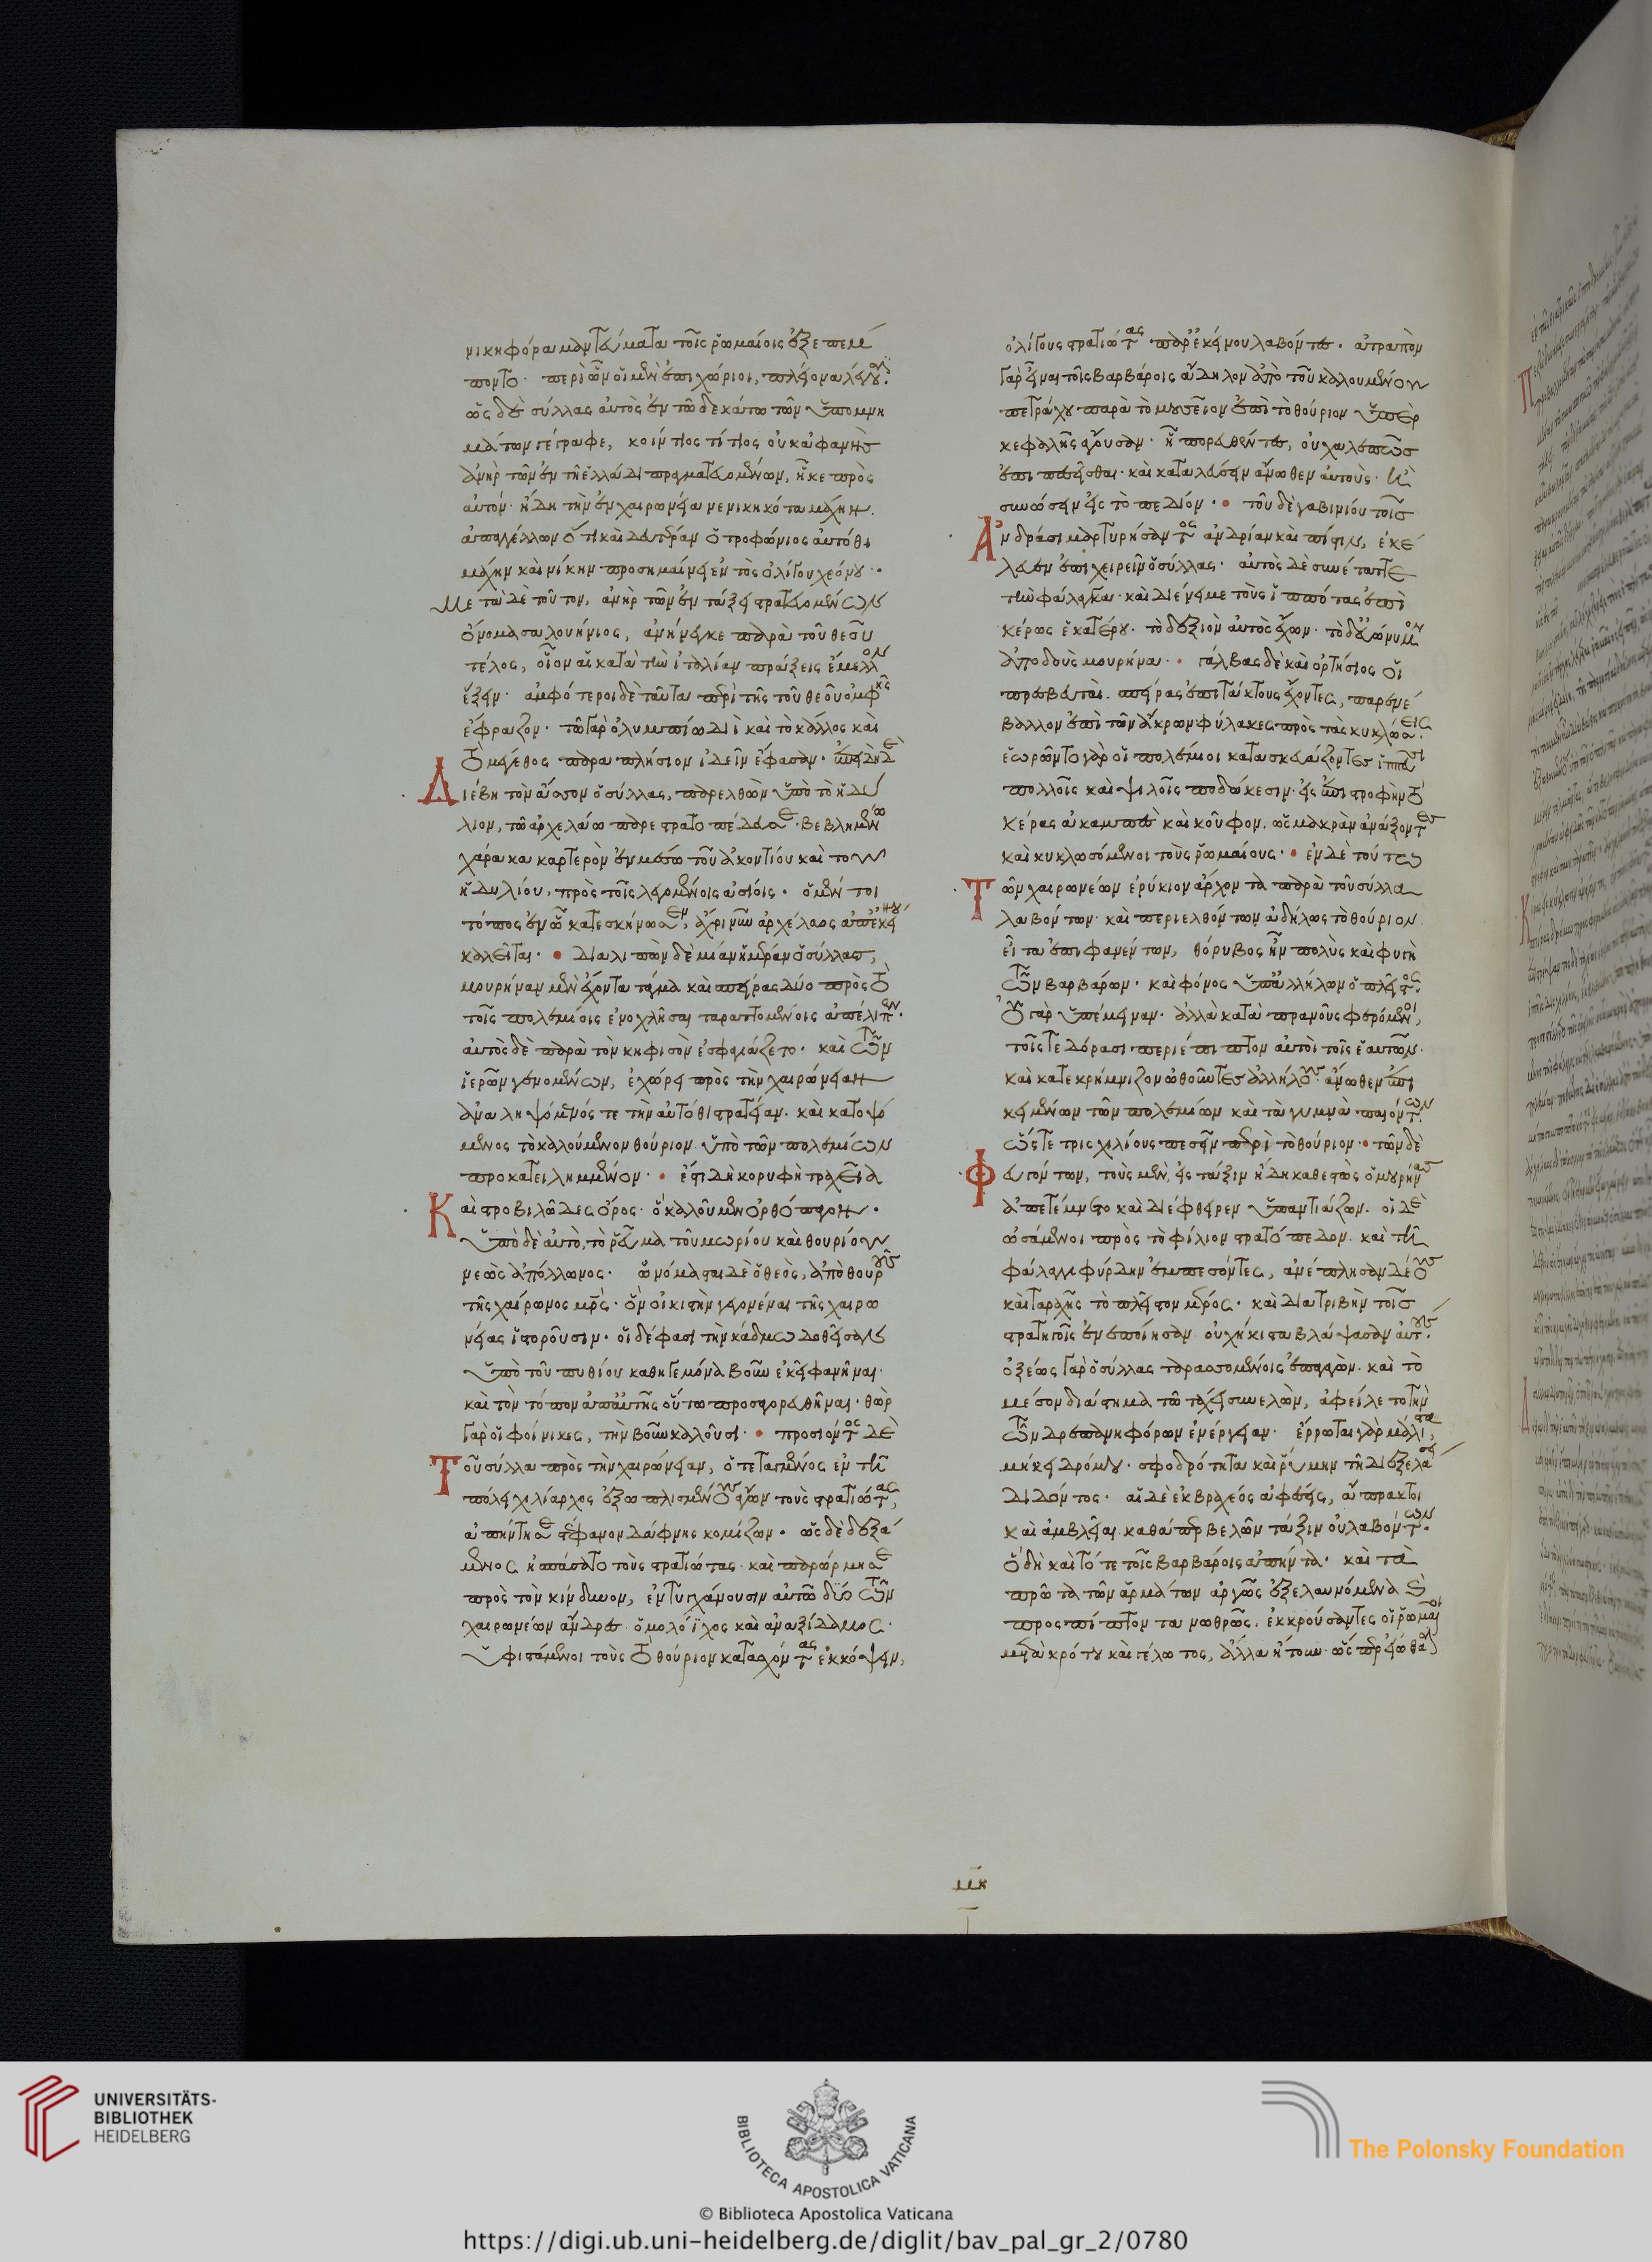 νικηφόρα μαντεύματα τοῖς ῥωμαίοις ἐξεπέμ
ποντο· περὶ ὧν οἱ μὲν ἐπιχώριοι, πλείονα λέγου·
ὡς δὲ σύλλας αὐτὸς ἐν τῷ δεκάτῳ τῶν ὑπομνη
μάτων γέγραφε, κοίντος τίτιος οὐκ ἀφανὴς
ἀνὴρ τῶν ἐν τῇ ἑλλάδι πραγματευομένων, ἧκε πρὸς
αὐτόν· ἤδη τὴν ἐν χαιρωνείᾳ νενικηκότα μάχην.
ἀπαγγέλλων ὅτι καὶ δευτέραν ὁ τροφώνιος αὐτόθι
μάχην καὶ νίκην προσημαίνει ἐντὸς ὀλίγου χρόνου·
μετὰ δὲ τοῦτον, ἀνὴρ τῶν ἐν τάξει στρατευομένων
ὄνομα σαλουήνιος, ἀνήνεγκε παρὰ τοῦ θεοῦ
τέλος, οἷον αἱ κατὰ τὴν ἰταλίαν πράξεις ἔμελλον
ἕξειν· ἀμφότεροι δὲ ταῦτα περὶ τῆς τοῦ θεοῦ ὀμφῆς
ἔφραζον· τῷ γὰρ ὀλυμπίῳ διῒ καὶ τὸ κάλλος καὶ
τὸ μέγεθος παραπλήσιον ἰδεῖν ἔφασαν· ἐπεὶ δὲ
Διέβη τὸν ἄσσον ὁ σύλλας, παρελθὼν ὑπὸ τὸ ἡδύ
λιον, τῷ ἀρχελάῳ παρεστρατοπέδευσε· βεβλημένῳ
χάρακα καρτερὸν ἐν μέσῳ τοῦ ἀκοντίου καὶ τοῦ
ἡδυλίου, πρὸς τοῖς λεγομένοις ἀσσίοις· ὁ μέν τοι
τόπος ἐν ᾧ κατεσκήνωσεν, ἄχρι νῦν ἀρχέλαος ἀπ' ἐκείνου
καλεῖται· διαλιπὼν δὲ μίαν ἡμέραν ὁ σύλλας,
μουρήναν μὲν ἔχοντα τάγμα καὶ σπείρας δύο πρὸς τὸ
τοῖς πολεμίοις ἐνοχλῆσαι ταραττομένοις ἀπέλιπεν·
αὐτὸς δὲ παρὰ τὸν κηφισὸν ἐσφαγιάζετο· καὶ τῶν
ἱερῶν γενομένων, ἐχώρει πρὸς τὴν χαιρώνειαν
ἀναληψόμενός τε τὴν αὐτόθι στρατείαν· καὶ κατοψό
μενος τὸ καλούμενον θούριον ὑπὸ τῶν πολεμίων
προκατειλημμένον· ἔστι δὴ κορυφὴ τραχεῖα
Καὶ στροβιλῶδες ὄρος· ὃ καλοῦμεν ὀρθόπαγον·
ὑπὸ δὲ αὐτὸ, τὸ ῥεῦμα τοῦ μωρίου καὶ θουρίου
νεὼς ἀπόλλωνος· ὠνόμασται δὲ ὁ θεὸς, ἀπὸ θουροῦς
τῆς χαίρωνος μητρὸς· ὃν οἰκιστὴν γεγονέναι τῆς χαιρω
νείας ἱστοροῦσιν· οἱ δέ φασι τὴν κάδμῳ δοθεῖσαν
ὑπὸ τοῦ πυθίου καθηγεμόνα βοῦν ἐκεῖ φανῆναι·
καὶ τὸν τόπον ἀπ' αὐτῆς οὕτω προσαγορευθῆναι· θὼρ
γὰρ οἱ φοίνικες, τὴν βοῦν καλοῦσι· προσιόντος δὲ
Τοῦ σύλλα πρὸς τὴν χαιρώνειαν, ὁ τεταγμένος ἐν τῇ
πόλει χιλίαρχος ἐξωπλισμένους ἄγων τοὺς στρατιώτας,
ἀπήντησε στέφανον δάφνης κομίζων· ὡς δὲ δεξά
μενος ἠσπάσατο τοὺς στρατιώτας· καὶ παρώρμησε
πρὸς τὸν κίνδυνον, ἐντυγχάνουσιν αὐτῷ δύο τῶν
χαιρωνέων ἄνδρες ὁμολόϊχος καὶ ἀναξίδαμος·
ὑφιστάμενοι τοὺς τὸ θούριον κατασχόντας ἐκκόψειν,
ὀλίγους στρατιώτας παρ' ἐκείνου λαβόντες· ἀτραπὸν
γὰρ εἶναι τοῖς βαρβάροις ἄδηλον ἀπὸ τοῦ καλουμένου
πετράχου παρὰ τὸ μουσεῖον ἐπὶ τὸ θούριον ὑπὲρ
κεφαλῆς ἄγουσαν· ᾗ πορευθέντες, οὐ χαλεπῶς
ἐπιπεσεῖσθαι· καὶ καταλεύσειν ἄνωθεν αὐτοὺς· ἢ
συνώσειν εἰς τὸ πεδίον· τοῦ δὲ γαβινίου τοῖς
Ἀνδράσι μαρτυρήσαντος ἀνδρίαν καὶ πίστιν, ἐκέ
λευεν ἐπιχειρεῖν ὁ σύλλας· αὐτὸς δὲ συνέταττε
τὴν φάλαγγα· καὶ διένειμε τοὺς ἱππότας ἐπὶ
κέρως ἑκατέρου· τὸ δεξιὸν αὐτὸς ἔχων· τὸ δ' εὐώνυμον
ἀποδοὺς μουρήνᾳ· γάλβας δὲ καὶ ὁρτήσιος οἱ
πρεσβευταὶ. σπείρας ἐπιτάκτους ἔχοντες, παρενέ
βαλλον ἐπὶ τῶν ἄκρων φύλακες πρὸς τὰς κυκλώσεις·
ἑωρῶντο γὰρ οἱ πολέμιοι κατασκευάζοντες ἱππεῦσι
πολλοῖς καὶ ψιλοῖς ποδώκεσιν· εἰς ἐπιστροφὴν τὸ
κέρας εὐκαμπὲς καὶ κοῦφον. ὡς μακρὰν ἀνάξοντες
καὶ κυκλωσόμενοι τοὺς ῥωμαίους· ἐν δὲ τούτῳ
Τῶν χαιρωνέων ἐρύκιον ἄρχοντα παρὰ τοῦ σύλλα
λαβόντων· καὶ περιελθόντων ἀδήλως τὸ θούριον
εἶτα ἐπιφανέντων, θόρυβος ἦν πολὺς καὶ φυγὴ
τῶν βαρβάρων· καὶ φόνος ὑπ' ἀλλήλων ὁ πλεῖστος·
οὐ γὰρ ὑπέμειναν· ἀλλὰ κατὰ πρανοῦς φερόμενοι,
τοῖς τε δόρασι περιέπιπτον αὐτοὶ τοῖς ἑαυτῶν·
καὶ κατεκρήμνιζον ὠθοῦντες ἀλλήλους· ἄνωθεν ἐπι
κειμένων τῶν πολεμίων καὶ τὰ γυμνὰ παιόντων
ὥς τε τρισχιλίους πεσεῖν περὶ τὸ θούριον· τῶν δὲ
Φευγόντων, τοὺς μὲν, εἰς τάξιν ἤδη καθεστὼς ὁ μουρήνας
ἀπετέμνετο καὶ διέφθειρεν ὑπαντιάζων· οἱ δὲ
ὠσάμενοι πρὸς τὸ φίλιον στρατόπεδον· καὶ τῇ
φάλαγγι φύρδην ἐμπεσόντες, ἀνέπλησαν δέους
καὶ ταραχῆς τὸ πλεῖστον μέρος· καὶ διατριβὴν τοῖς
στρατηγοῖς ἐνεποίησαν οὐχ ἥκιστα βλάψασαν αὐτούς·
ὀξέως γὰρ ὁ σύλλας ταρασσομένοις ἐπαγαγὼν· καὶ τὸ
μέσον διάστημα τῷ τάχει συνελὼν, ἀφείλετο τὴν
τῶν δρεπανηφόρων ἐνέργειαν· ἔρρωται γὰρ μάλιστα
μήκει δρόμου· σφοδρότητα καὶ ῥύμην τῇ διεξελάσει
διδόντος· αἱ δὲ ἐκ βραχέος ἀφέσεις, ἄπρακτοι
καὶ ἀμβλεῖαι καθάπερ βελῶν τάσιν οὐ λαβόντων·
ὃ δὴ καὶ τότε τοῖς βαρβάροις ἀπήντα· καὶ τὰ
πρῶτα τῶν ἁρμάτων ἀργῶς ἐξελαυνόμενα καὶ
προσπίπτοντα νωθρῶς· ἐκκρούσαντες οἱ ῥωμαῖοι
μετὰ κρότου καὶ γέλωτος, ἄλλα ᾔτουν· ὥσπερ εἰώθασιν
μη
UNIVERSITÄTS-
BIBLIOTHEK
HEIDELBERG
BIBLIOTECA APOSTOLICA VATICANA
The Polonsky Foundation
© Biblioteca Apostolica Vaticana
https://digi.ub.uni-heidelberg.de/diglit/bav_pal_gr_2/0780